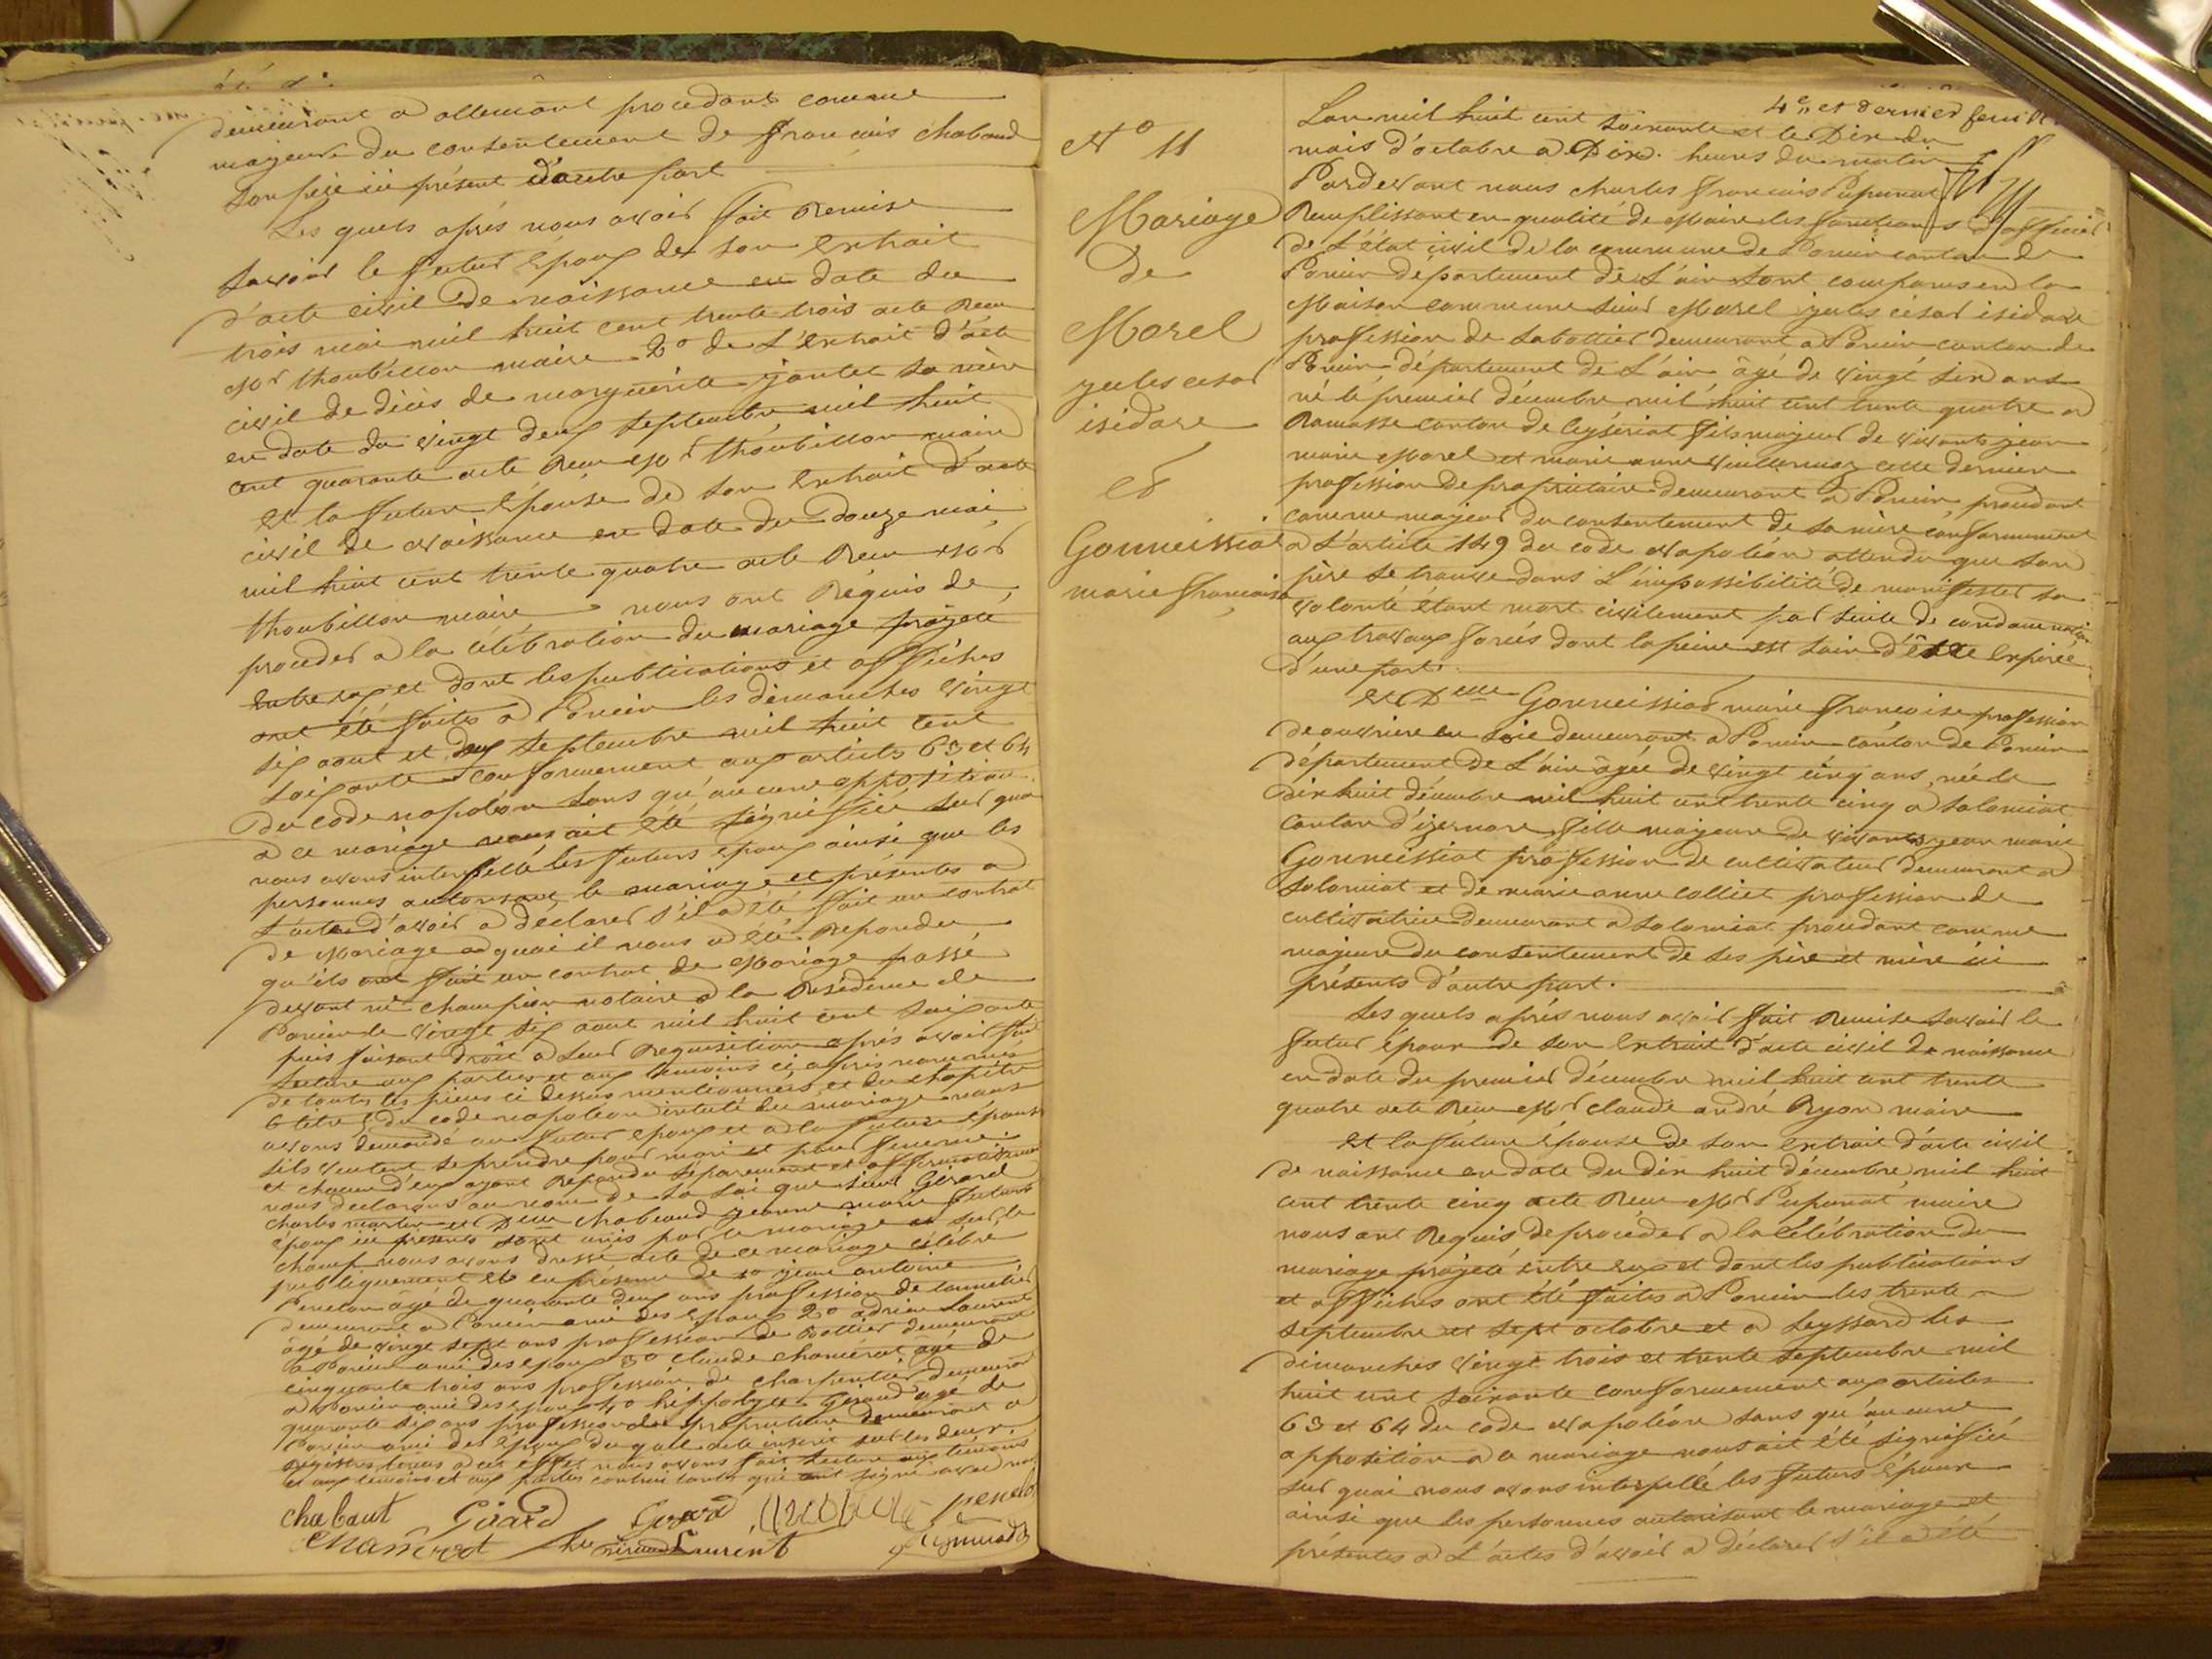 demeurant a allement procedant comme
majeure du consentement de francais chabaud
son père ici présent d'autre part
Les quels après nous avoir fait Remise
savoir le futur époux de son Extrait
d'acte civil de naissance en date du
trois mai mil huit cent trente trois acte Recu
Mr thoubillon maire 2° de L'extrait d'acte
civil de décès de marguerite jantet sa mère
en date du vingt deux septembre mil huit
cent quarante acte Recu Mr thoubillon maire
et la future épouse de son Extrait d'acte
civil de naissance en date du Douze mai
mil huit cent trente quatre acte Recu Mr
thoubillon maire nous ont Réquis de
proceder a la célébration du mariage projeté
Entre eux et dont les publications et affiches
ont été faites a Poncin les dimanches vingt
six aout et deux septembre mil huit cent
soixante conformement aux articles 63 et 64
Du code napoléon sans qu'aucune opposition
a ce mariage nous ait été signifiée sur quoi
nous avons interpellé les futurs epoux ainsi que les
personnes autorisant le mariage et présentes a
L'acte d'avoir a declarer s'il a été fait un contrat
de Mariage a quoi il nous a été Repondu
qu'ils ont fait un contrat de Mariage passé
devant me champion notaire a la Residence de
Poncin le vingt six aout mil huit cent soixante
puis faisant droit a leur Requisition après avoir fait
lecture aux parties et aux temoins ci après nommés
de toutes les pieces ci dessus mentionnées et du chapitre
6 titre 5 du code napoléon intitulé du mariage nous
avons demandé au futur epoux et a la future épouse
s'ils veulent se prendre pour mari et pour femme
et chacun d'eux ayant Repondu séparement et affirmativement
nous declarons au nom de la loi que sieur Girard
charles martin et Delle chabaud jeanne marie futurs
époux ici presents sont unis par le mariage et sur le
champ nous avons dressé acte de ce mariage célébré
publiquement et en présence de 1° jean antoine
Penelon âgé de quarante deux ans profession de tonnelier
demeurant a Poncin ami des epoux 2° adrien Laurent
âgé de vingt sept ans profession de Bottier demeurant
a Poncin ami des epoux 3° claude chanérat âgé de
cinquante trois ans profession de charpentier demeurant
a Poncin ami des epoux 4° hippolyte Giraud agé de
quarante six ans profession de propriétaire demeurant a
Poncin ami des époux du quel acte inscrit sur les deux
Registres tenus a cet effet nous avons fait lecture aux témoins
et aux parties contractantes qui ont signé avec nous
chabaut Girard Girard penelon
chanérat Laurent
4e et dernier feuillet
N° 11
Mariage
De
Morel
jules cesar
isidore
et
Gonneissiat
marie francaise
Lan mil huit cent soixante et le Dix du
mois d'octobre a Dix heures du matin
Pardevant nous charles francois Pupunat
Remplissant en qualité de Maire les fonctions d'officier
de L'état civil de la commune de Poncin canton de
Poncin departement de L'ain sont comparus en la
Maison commune sieur Morel jules césar isidore
profession de sabottier demeurant a Poncin canton de
Poncin département de L'ain âgé de vingt six ans
né le premier décembre mil huit cent trente quatre a
Ramasse canton de ceyseriat fils majeur de vivants jean
marie Morel et marie anne Vuillermoz cette derniere
profession de propriétaire demeurant a Poncin procedant
comme majeur du consentement de sa mère conformement
a L'article 149 du code Napoléon attendu que son
père se trouve dans L'impossibilité de manifester sa
volonté étant mort civilement par suite de condamnation
aux travaux forcés dont la peine est loin d'être Expirée
d'une part.
et Delle Gonneissiat marie francoise profession
de ouvriere en soie demeurant a Poncin canton de Poncin
département de L'ain âgée de vingt cinq ans, née le
dix huit décembre mil huit cent trente cinq a solomiat
canton d'izernore fille majeure de vivants jean marie
Gonneissiat profession de cultivateur demeurant a
solomiat et de marie anne Colliet profession de
cultivatrice demeurant a solomiat procedant comme
majeure du consentement de ses père et mère ici
présents d'autre part.
Les quels après nous avoir fait Remise savoir le
futur époux de son Extrait d'acte civil de naissance
en date du premier décembre mil huit cent trente
quatre acte Recu Mr claude andré Ryon maire
et la future épouse de son Extrait d'acte civil
de naissance en date du dix huit décembre mil huit
cent trente cinq acte Recu Mr Pupunat maire
nous ont Requis de procéder a la Célébration du
mariage projeté entre eux et dont les publications
et affiches ont été faites a Poncin les trente
septembre et sept octobre et a Leyssard les
dimanches vingt trois et trente septembre mil
huit cent soixante conformement aux articles
63 et 64 du code Napoléon sans qu'aucune
opposition a ce mariage nous ait été signifiée
sur quoi nous avons interpellé les futurs epoux
ainsi que les personnes autorisant le mariage et
présentes a L'actes d'avoir a déclarer s'il a été